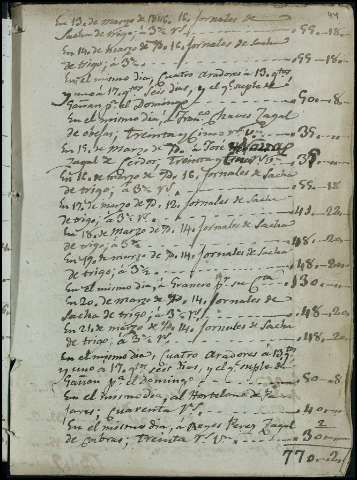 44
En 13, de marzo de 1846. 16, Jornales de
Sacha de trigo, à 3½ rs. 55 - 18
En 14, de marzo de Yd. 16, Jornales de Sacha
de trigo, à 3½ 55 - 18
En el mismo dia, Cuatro Aradores à 13 qtos
y uno à 17, qtos seis dias, y el q.e suple de
Gañan p.r el Domingo 50 - 8
En el mismo dia, à Fran.co Chaves Zagal
de obejas, treinta y Cinco rs. vn. 35
En 15, de Marzo de Yd. à José
Zagal de Cerdos, treinta y Cinco rs. vn. 35
En 16, de marzo de Yd. 16, Jornales de Sacha
de trigo, à 3½ rs. 55 - 18
En 17, de marzo de Yd. 12, Jornales de Sacha
de trigo, à 3½ rs.
En 18, de Marzo de Yd. 14, Jornales de Sacha
de trigo, à 3½ 48 - 20
En 19, de marzo de Yd. 14, Jornales de Sacha
de trigo, à 3½ 48 - 20
En el mismo dia, à p.r su 130
En 20, de marzo de Yd. 14, Jornales de
Sacha de trigo, à 3½ rs. 48 - 20
En 21, de marzo de Yd. 14, Jornales de Sacha
de trigo, à 3½ rs. 48 - 20
En el mismo dia, Cuatro Aradores à 13 qtos
y uno à 17, qtos seis dias, y el q.e suple de
Gañan p.r el Domingo 50 - 8
En el mismo dia, al Hortelano de
Cuarenta rs. 40
En el mismo dia, à Reyes Perez Zagal
de Cabras, treinta rs. vn. 30
770 - 2